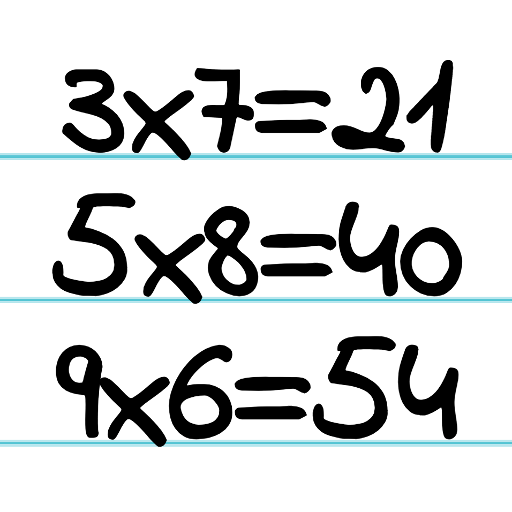 3x7=21
5x8=40
9x6=54